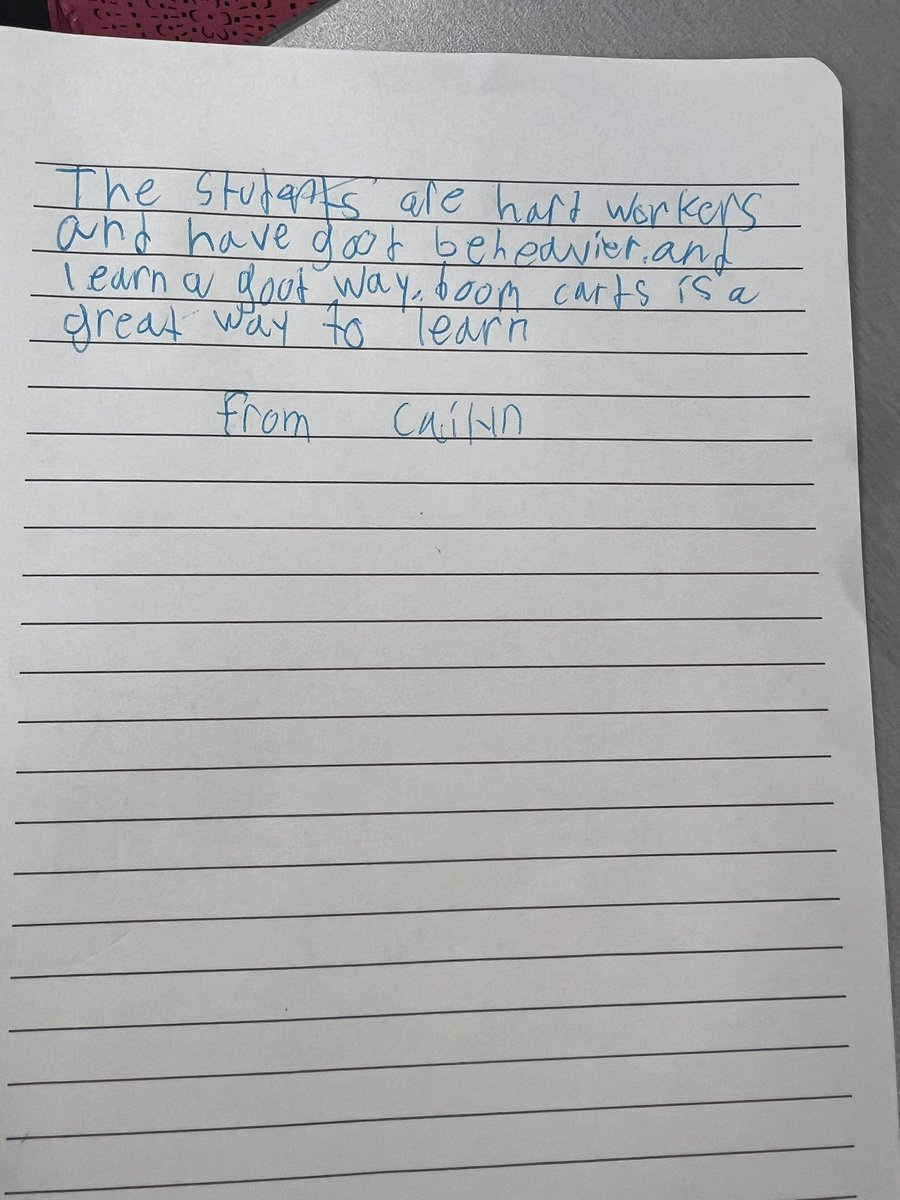 The students are hard workers
and have good beheavier.and
learn a good way. boom cards is a
great way to learn
from Cailyn